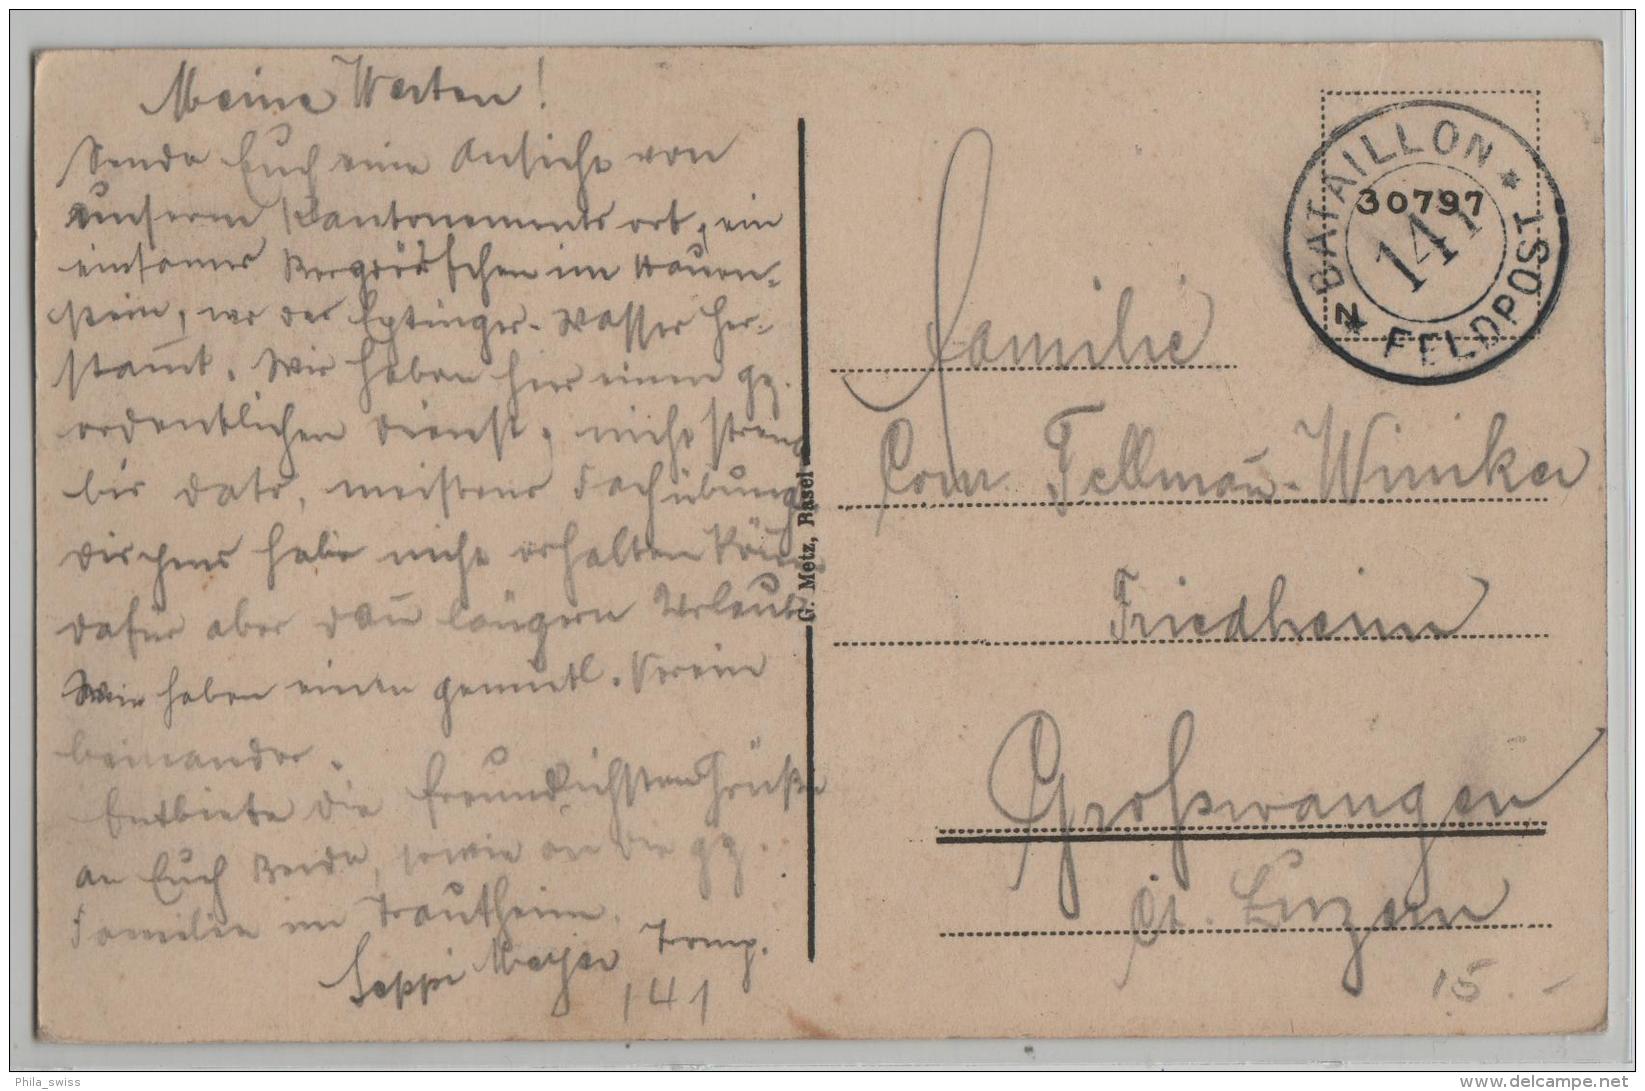 Meine Werten!
Sende Euch eine Ansicht von
unserm Kantonementsort, ein
einsames Bergdörfchen im Hauen-
stein, wo das Eptinger-Wasser her-
stam̄t. Wir haben hier einen gz.
ordentlichen Dienst, nicht streng
bis dato, meistens Fachübung
habe nicht erhalten kön̄en
dafür aber dan̄ längern Urlaub
Wir haben einen gemütl. Verein
beinander.
Entbiete die freundlichsten Grüße
an Euch Beide, sowie an die gz.
Familie im Trautheim.
Seppi Meyer Tromp.
141
G. Metz, Basel
BATAILLON
30797
141
FELDPOST
Familie
Com. Fellman̄-Winiker
Friedheim
Großwangen
Ct. Luzern
15.-
Phila_swiss
www.delcampe.net